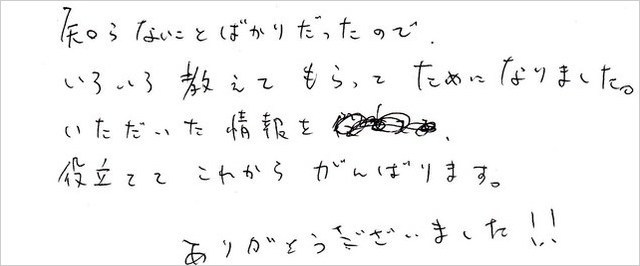 知らないことばかりだったので、
いろいろ教えてもらってためになりました。
いただいた情報を
役立ててこれからがんばります。
ありがとうございました!!